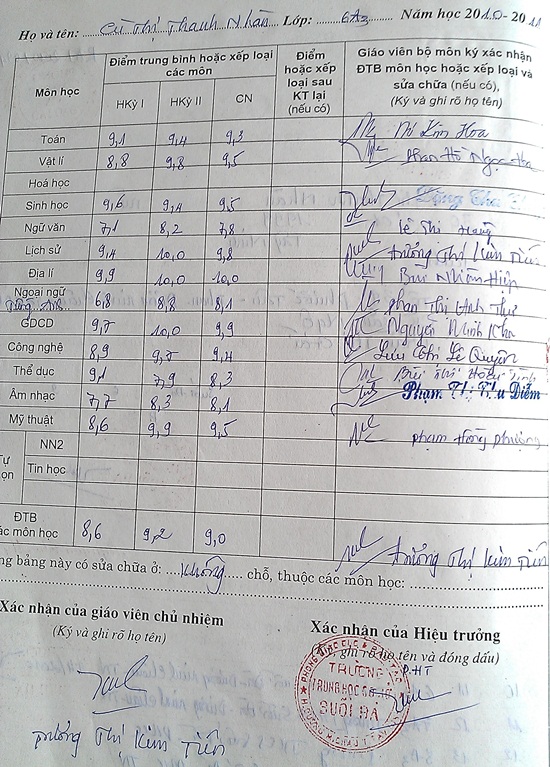 Họ và tên: Cù Thị Thanh Nhàn Lớp: 6A3 Năm học 2010-2011
Môn học
Điểm trung bình hoặc xếp loại các môn
HKỳ I HKỳ II CN
Điểm hoặc xếp loại sau KT lại (nếu có)
Giáo viên bộ môn ký xác nhận ĐTB môn học hoặc xếp loại và sửa chữa (nếu có),
(Ký và ghi rõ họ tên)
Toán 9,1 9,4 9,3 Kim Hoa
Vật lí 8,8 9,8 9,5 Phan Hồ Ngọc
Hoá học
Sinh học 9,6 9,4 9,5
Ngữ văn 7,1 8,2 7,8 Lê Thị
Lịch sử 9,4 10,0 9,8 Dương Thị Kim Tiến
Địa lí 9,9 10,0 10,0 Bùi Nhâm Hiệp
Ngoại ngữ 6,8 8,8 8,1 Phan Thị Anh Thư
Tiếng Anh
GDCD 9,7 10,0 9,9 Nguyễn Minh
Công nghệ 8,9 9,7 9,4 Lưu Thị Lệ Quyên
Thể dục 9,1 7,9 8,3 Bùi
Âm nhạc 7,7 8,3 8,1 Phạm Thị Thu Diễm
Mỹ thuật 8,6 9,9 9,5 Phạm Hồng Phượng
NN2
Tự
Tin học
ọn
ĐTB
các môn học 8,6 9,2 9,0 Dương Thị Kim Tiến
ng bảng này có sửa chữa ở: Không chỗ, thuộc các môn học:
Xác nhận của giáo viên chủ nhiệm
(Ký và ghi rõ họ tên)
Dương Thị Kim Tiến
Xác nhận của Hiệu trưởng
ghi rõ họ tên và đóng dấu)
P.HT
TRƯỜNG
TRUNG HỌC CƠ SỞ
SUỐI ĐÁ